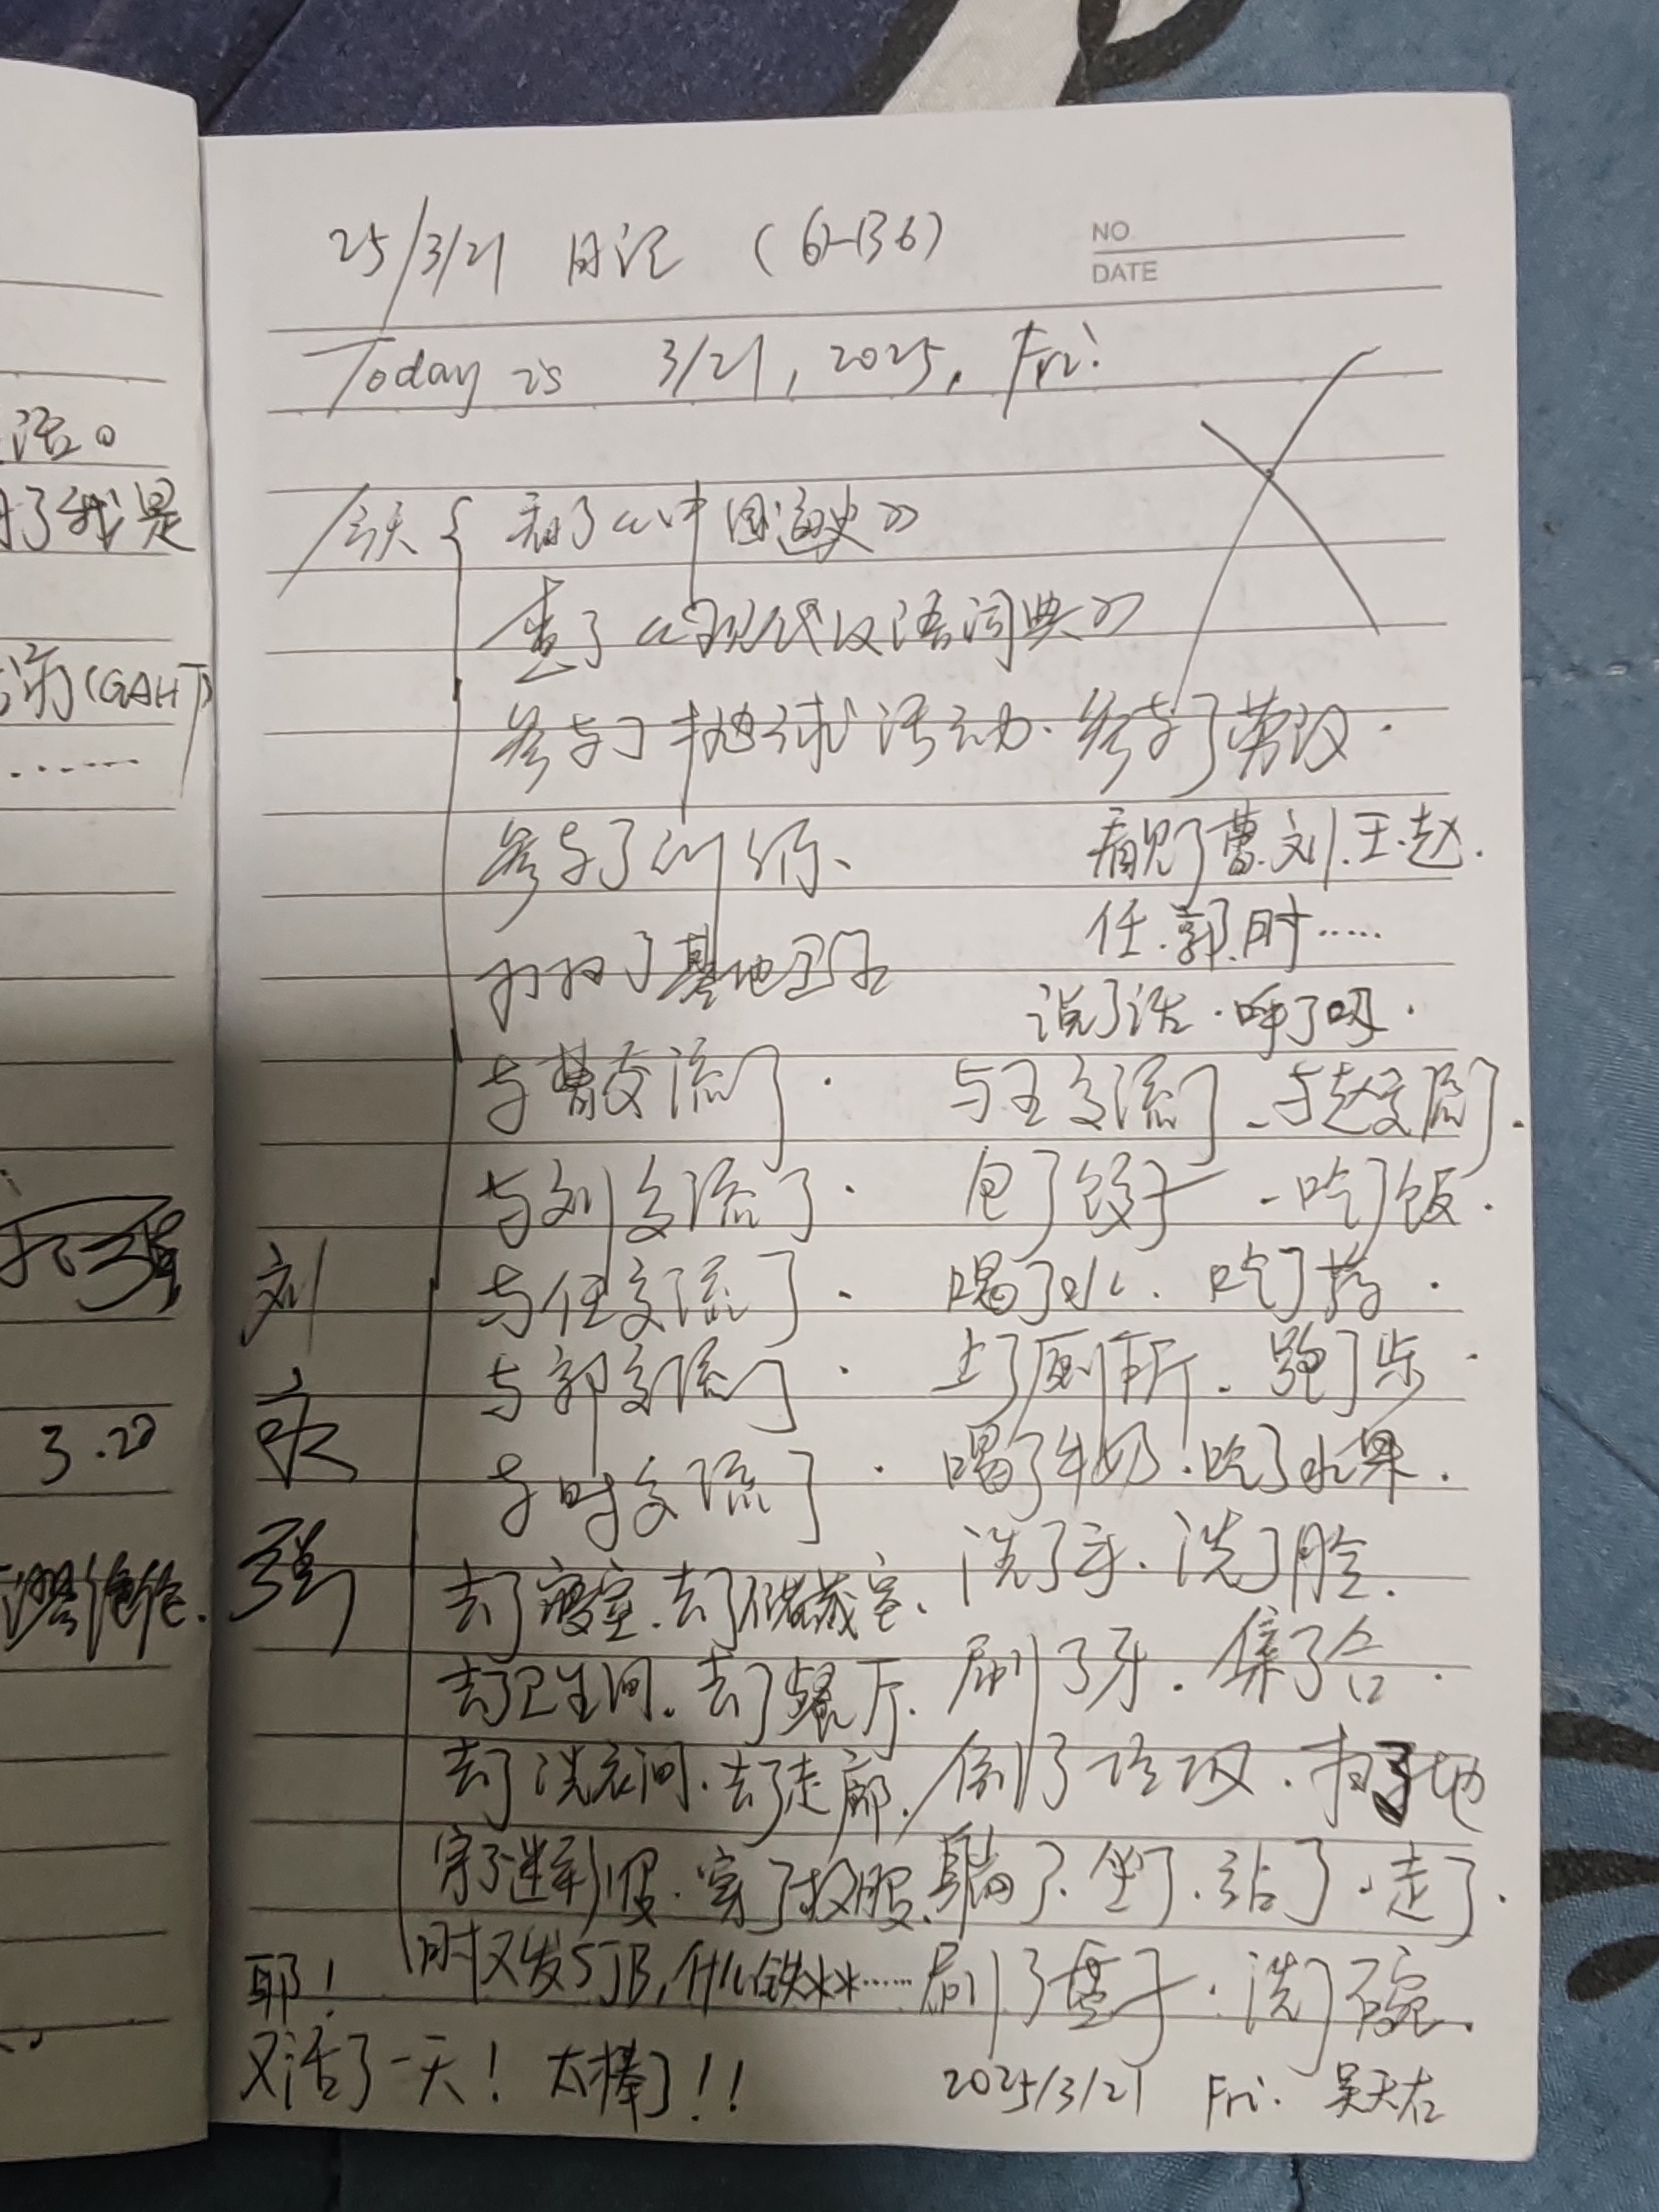 25/3/21 日记 (6-136)
NO
DATE
Today is 3/21, 2025, Fri.
今天 { 看了《中国通史》
查了《现代汉语词典》
参与了抛球活动. 参与了劳改.
参与了训练、
看见了曹.刘.王.赵.
任.郭.时……
打扫了基地卫生
说了话.呼了吸.
与曹交流了. 与王交流了、与赵交流了.
与刘交流了. 包了饺子、吃了饭.
与任交流了. 喝了水. 吃了药.
与郭交流了. 上了厕所. 跑了步.
与时交流了. 喝了牛奶.吃了水果.
洗了手. 洗了脸.
去了寝室.去了储藏室.
去了卫生间.去了餐厅. 刷了牙. 集了合.
去了洗衣间.去了走廊. 倒了垃圾. 扫了地
穿了迷彩服. 穿了校服. 躺了.坐了.站了.走了.
时又发SJB,什么铁**…… 刷了盘子.洗了碗.
耶!
又活了一天! 太棒了!!
2025/3/21 Fri. 吴天右
刘
强
活。
了我是
(GAHT)
……
3.20